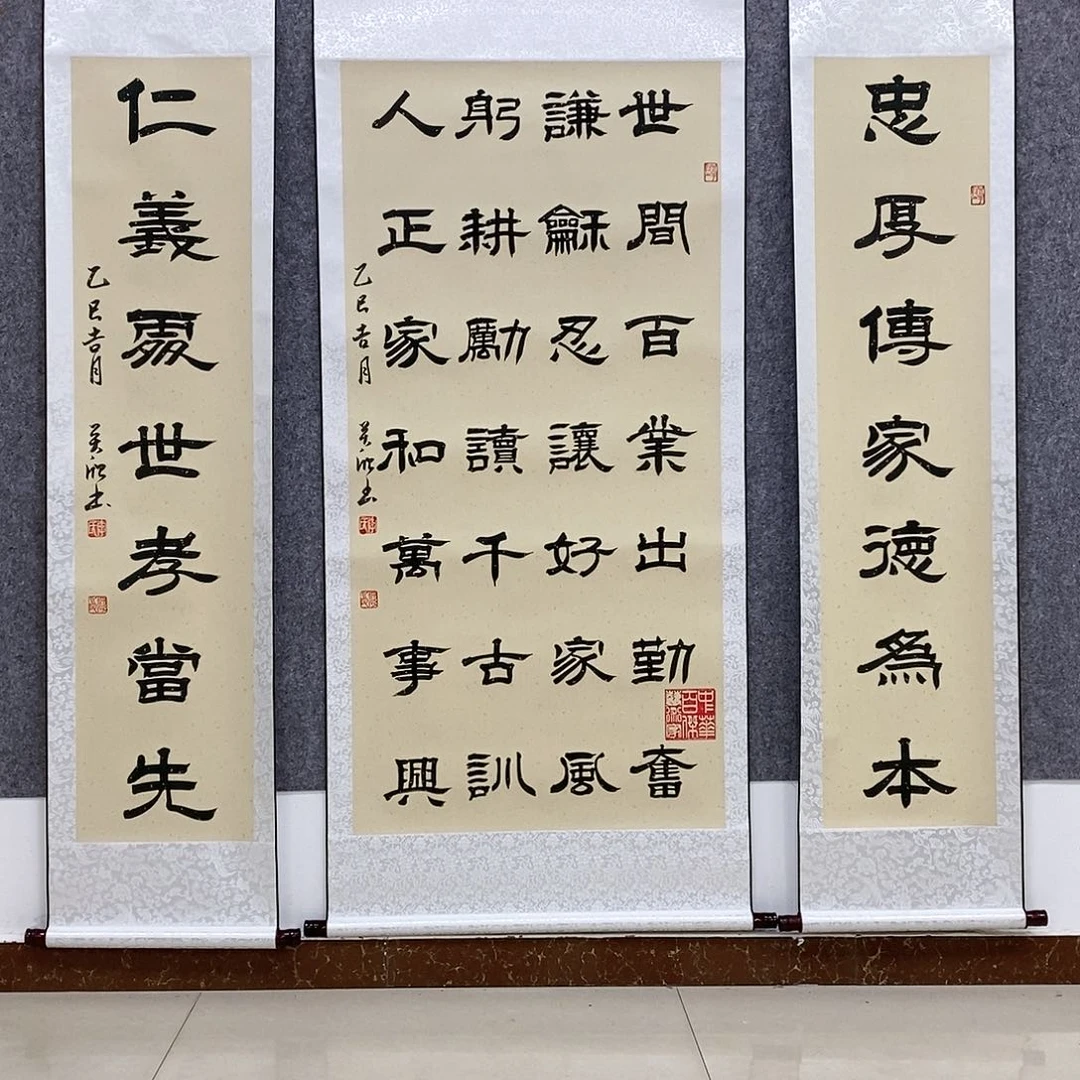 忠厚傳家德爲本
世間百業出勤奮
謙龢忍讓好家風
躬耕勵讀千古訓
人正家和萬事興
乙巳吉月
中華百傑藝術家
仁義處世孝當先
乙巳吉月